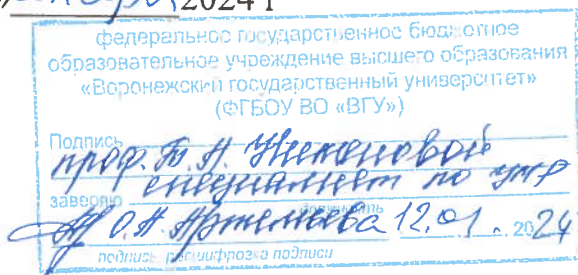 2024 г
федеральное государственное бюджетное
образовательное учреждение высшего образования
«Воронежский государственный университет»
(ФГБОУ ВО «ВГУ»)
Подпись
проф. Т. А. Никоновой
заверяю специалист по УМР
должность
О.А. Артемьева 12.01. 2024
подпись, расшифровка подписи